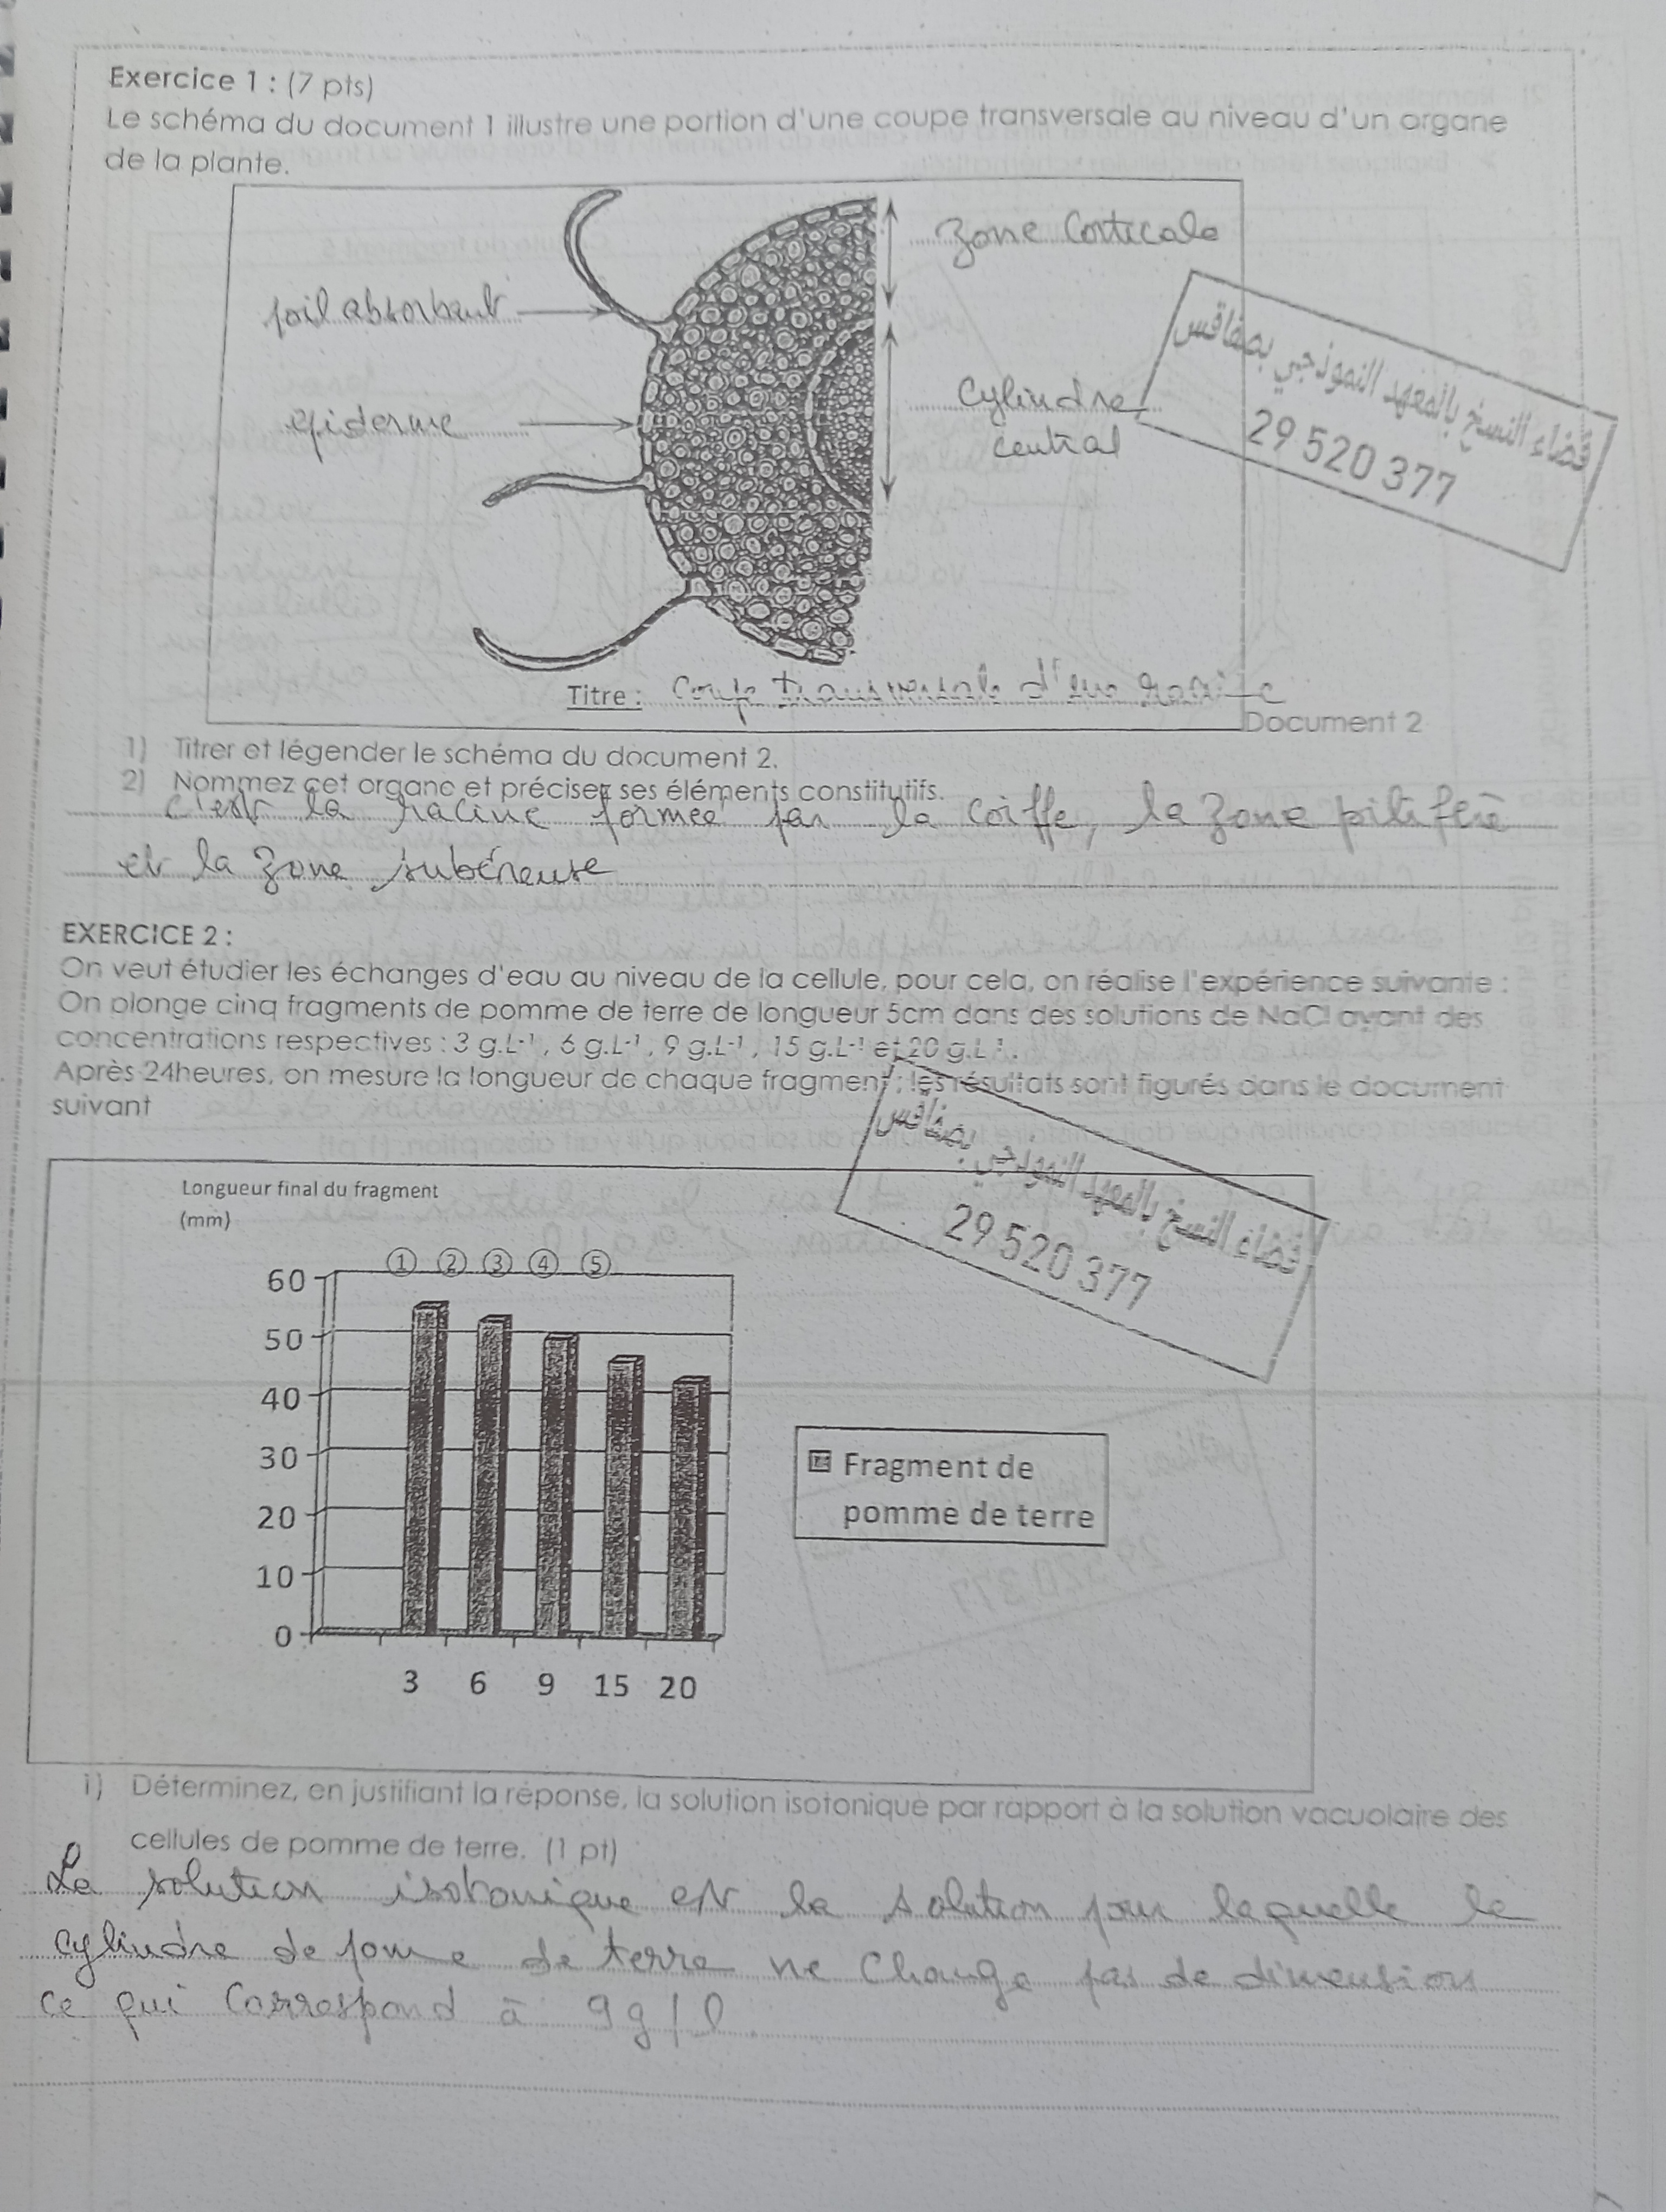 Exercice 1 : (7 pts)
Le schéma du document 1 illustre une portion d'une coupe transversale au niveau d'un organe
de la plante.
zone corticale
poil absorbant
épiderme
Cylindre
central
قضاء النسخ بالمعهد النموذجي بصفاقس
29 520 377
Titre : Coupe transversale d'une racine
Document 2
1) Titrer et légender le schéma du document 2.
2) Nommez cet organe et précisez ses éléments constitutifs.
c'est la racine formée par la coiffe, la zone pilifère
et la zone subéreuse
EXERCICE 2 :
On veut étudier les échanges d'eau au niveau de la cellule, pour cela, on réalise l'expérience suivante :
On plonge cinq fragments de pomme de terre de longueur 5cm dans des solutions de NaCl ayant des
concentrations respectives : 3 g.L-1 , 6 g.L-1 , 9 g.L-1 , 15 g.L-1 et 20 g.L-1 .
Après 24heures, on mesure la longueur de chaque fragment ; les résultats sont figurés dans le document
suivant
قضاء النسخ بالمعهد النموذجي بصفاقس
29 520 377
Longueur final du fragment
(mm)
① ② ③ ④ ⑤
60
50
40
30
20
10
0
3 6 9 15 20
Fragment de
pomme de terre
1) Déterminez, en justifiant la réponse, la solution isotonique par rapport à la solution vacuolaire des
cellules de pomme de terre. (1 pt)
La solution isotonique est la solution pour laquelle le
cylindre de pomme de terre ne change pas de dimension
ce qui correspond à 9g/l